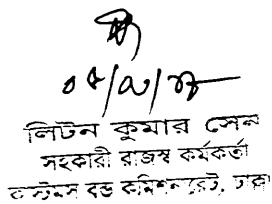 লিটন কুমার সেন
সহকারী রাজস্ব কর্মকর্তা
কাস্টমস বন্ড কমিশনারেট, ঢাকা